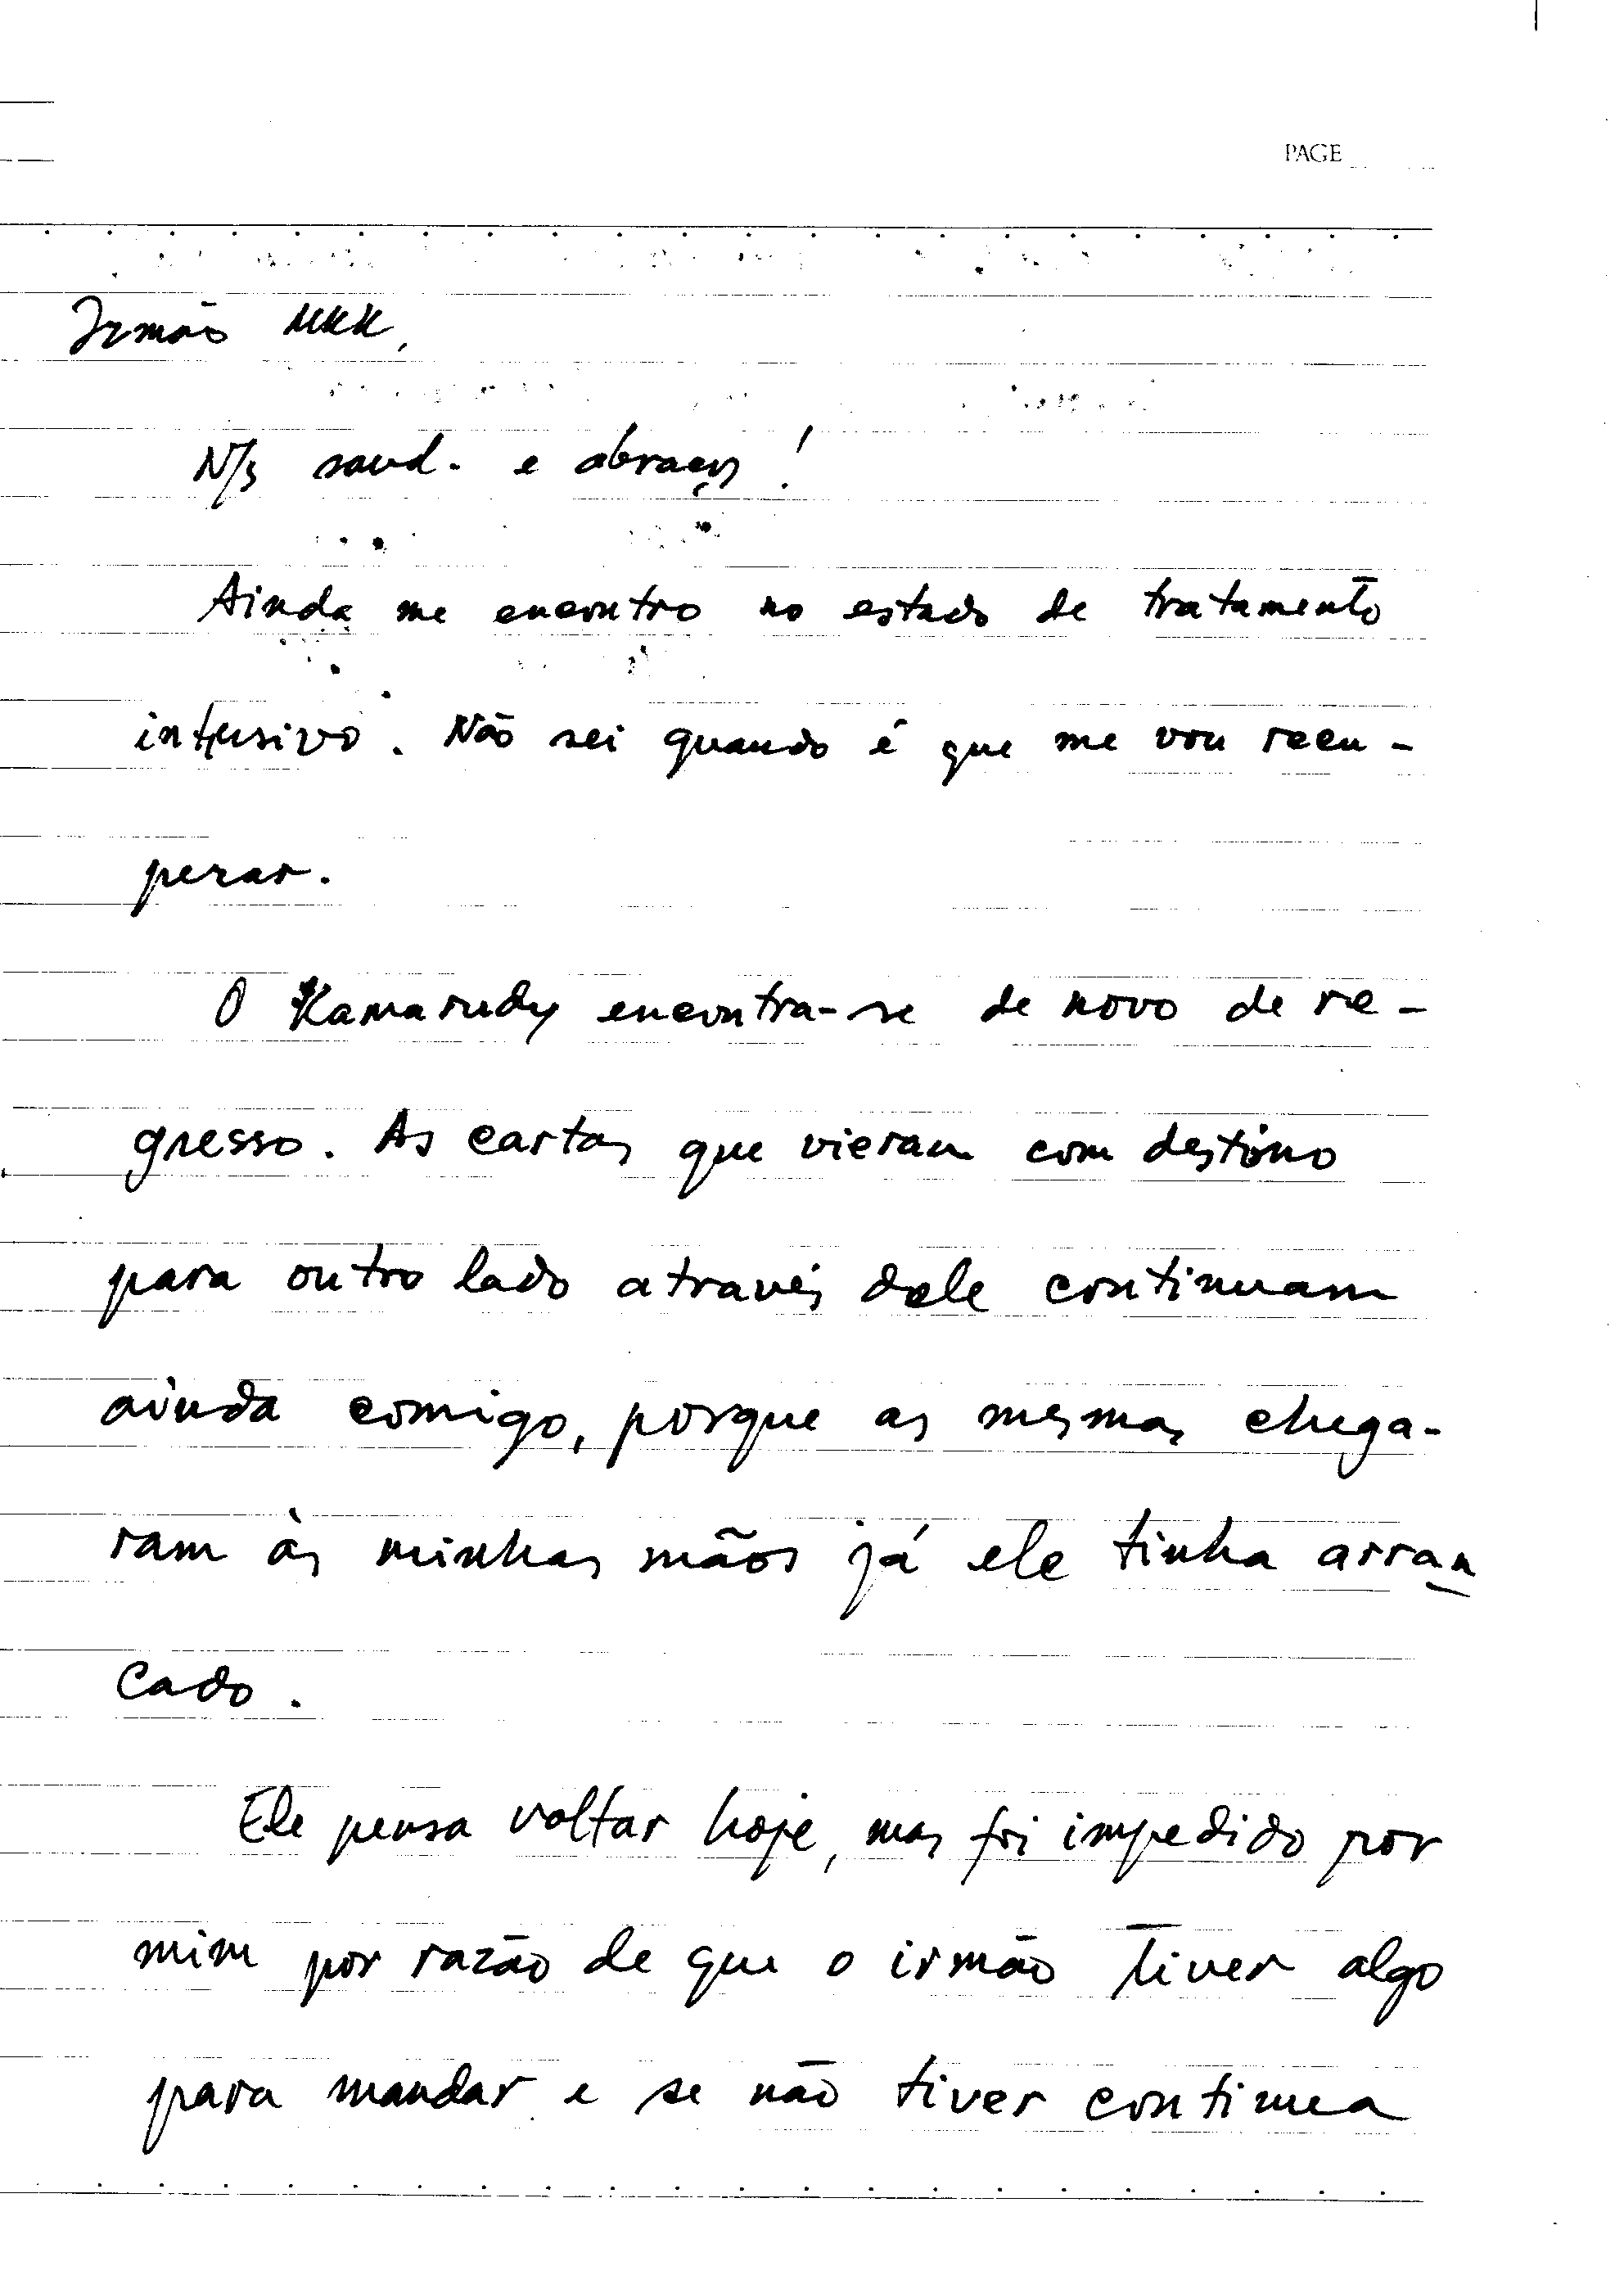 PAGE
Irmão MKK,
N/s saud. e abraços!
Ainda me encontro no estado de tratamento
intensivo. Não sei quando é que me vou recu-
perar.
O Kamarudy encontra-se de novo de re-
gresso. As cartas que vieram com destino
para outro lado através dele continuam
ainda comigo, porque as mesmas chega-
ram às minhas mãos já ele tinha arran
cado.
Ele pensa voltar hoje, mas foi impedido por
mim por razão de que o irmão tiver algo
para mandar e se não tiver continua